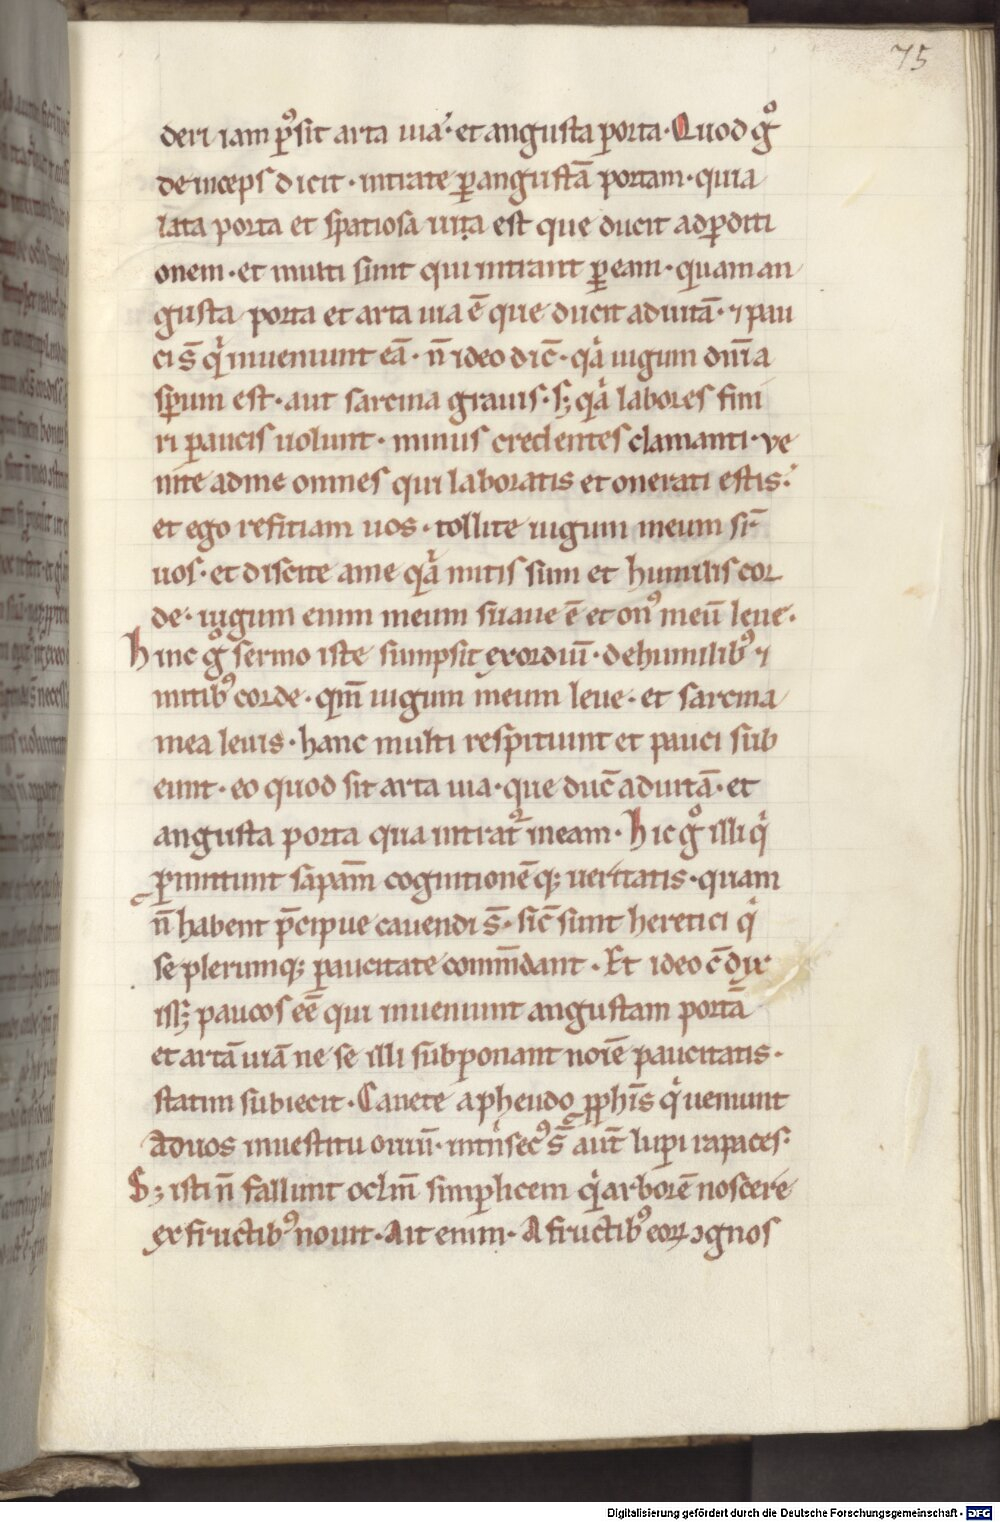 75
deri iam p͛sit arta uia· et angusta porta· Quod gͦ
deinceps dicit· intrate ꝑ angustā portam· quia
lata porta et spatiosa uita est que ducit adꝑditi
onem· et multi sunt qui intrant ꝑ eam· quam an
gusta porta et arta uia ē que ducit aduitā· ⁊ pau
ci s̄ qͥ inueniunt eā· n̄ ideo dic̄· qͣ iugum dn̄i a
sꝑum est· aut sarcina grauis· sꝫ qͣ labores fini
ri paucis uolunt· minus credentes clamanti· ve
nite adme omnes qui laboratis et onerati estis·
et ego refitiam uos· tollite iugum meum sr̄
uos· et discite ame qͣ mitis sum et humilis cor
de· iugum enim meum suaue ē et onꝰ meū leue·
hinc gͦ sermo iste sumpsit exordiū· dehumilibꝰ ⁊
mitibꝰ corde· qm̄ iugum meum leue· et sarcina
mea leuis· hanc multi respituunt et pauci sub
eunt· eo quod sit arta uia· que duc̄ aduitā· et
angusta porta qua intrat᷑ ineam· hic gͦ illi qͥ
ꝓmittunt sāpam̄ cognitionē qꝫ ueritatis· quam
n̄ habent p̄cipue cauendi s̄· sic̄ sunt heretici qͥ
se plerumqꝫ paucitate comm̄dant· Et ideo c̄ dix
issꝫ paucos eē qui inueniunt angustam portā
et artā uiā ne se illi subponant noīe paucitatis·
statim subiecit· Cauete apheudo ꝓph̄is qͥ ueniunt
aduos inuestitu ouiū· intͥnsecꝰ s̄ aut̄ lupi rapaces·
Sꝫ isti n̄ fallunt oclm̄ simplicem qͥ arborē noscere
ex fructibꝰ nouit· Ait enim· A fructibꝰ eoꝝ ꝯgnos
Digitalisierung gefördert durch die Deutsche Forschungsgemeinschaft - DFG